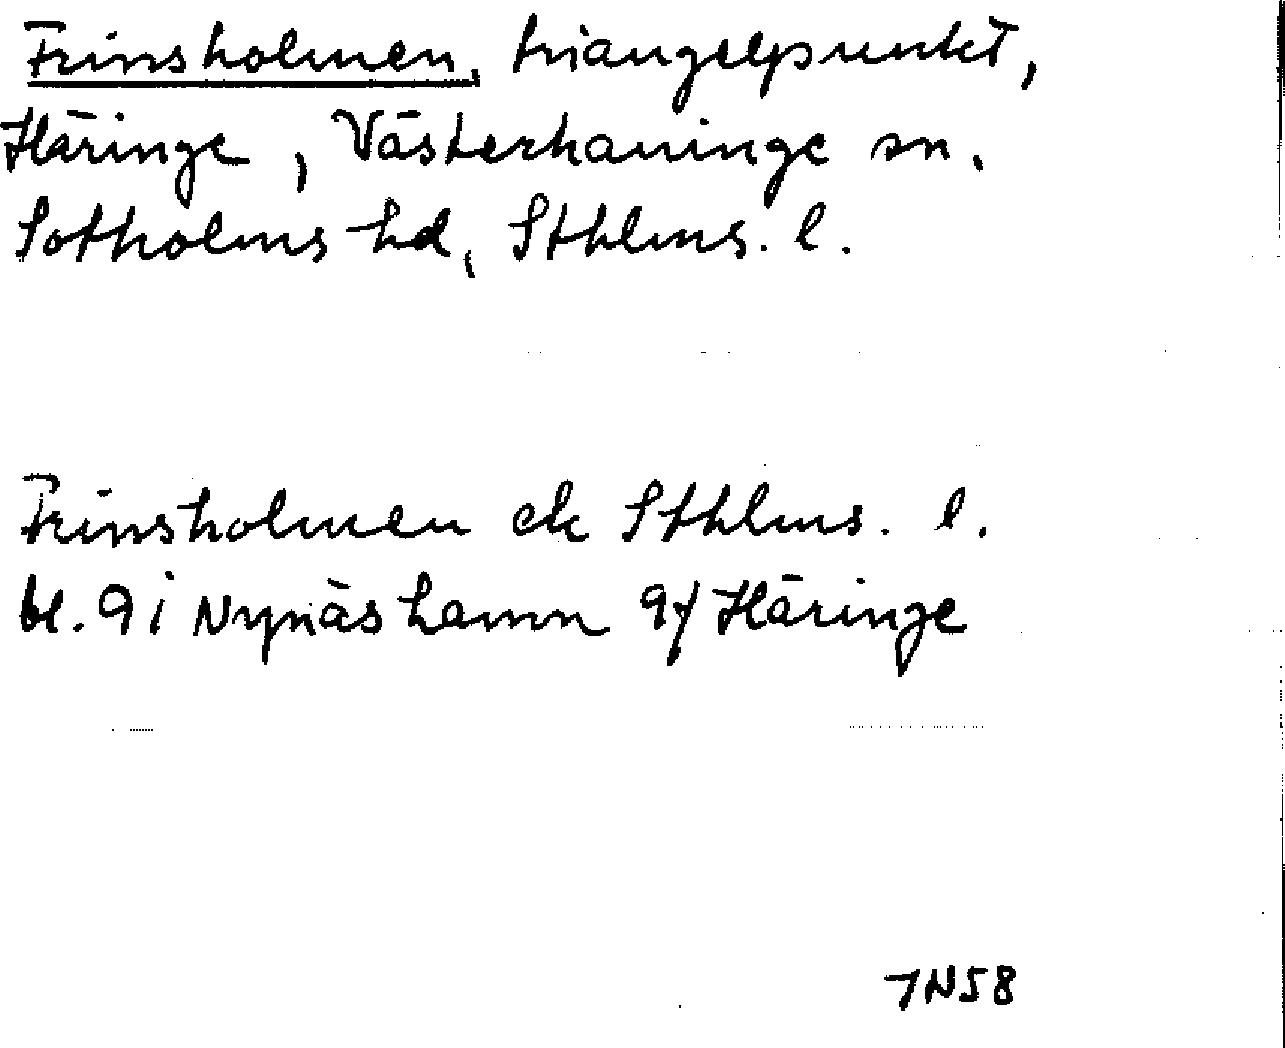 Frinsholmen, triangelpunkt,
Häringe, Västerhaninge sn.
Sotholms hd, Sthlms. l.
Frinsholmen ek Sthlms. l.
bl. 9i Nynäshamn 9f Häringe
7N58